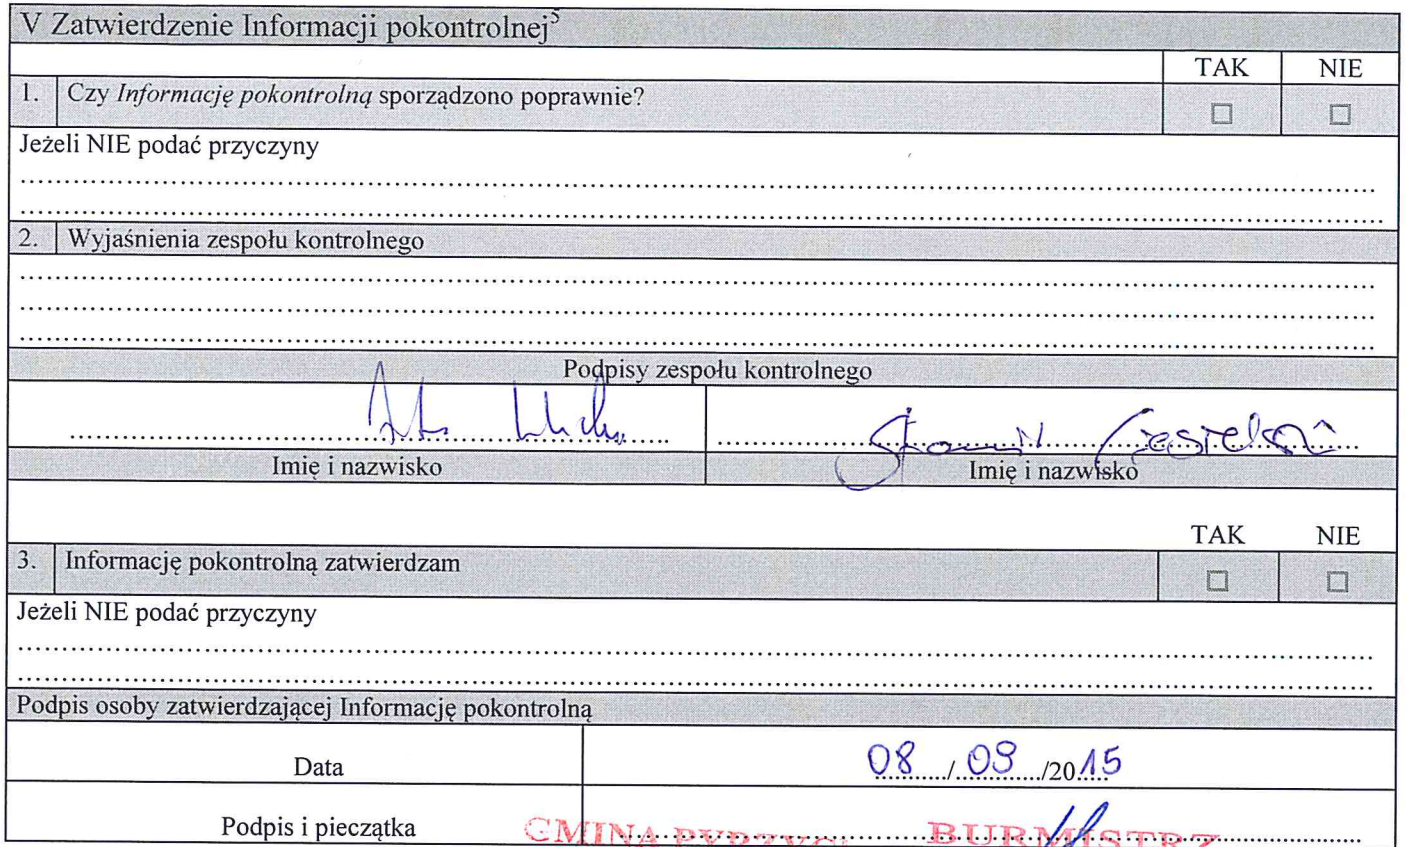 V Zatwierdzenie Informacji pokontrolnej⁵
TAK NIE
1. Czy Informację pokontrolną sporządzono poprawnie? □ □
Jeżeli NIE podać przyczyny
2. Wyjaśnienia zespołu kontrolnego
Podpisy zespołu kontrolnego
Imię i nazwisko Imię i nazwisko
TAK NIE
3. Informację pokontrolną zatwierdzam □ □
Jeżeli NIE podać przyczyny
Podpis osoby zatwierdzającej Informację pokontrolną
Data 08/09/2015
Podpis i pieczątka GMINA PYRZYCE BURMISTRZ